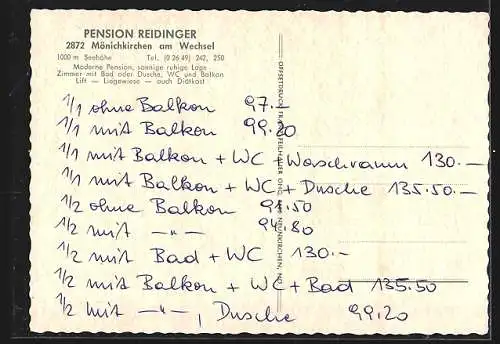 PENSION REIDINGER
2872 Mönichkirchen am Wechsel
1000 m Seehöhe Tel. (0 26 49) 242, 250
Moderne Pension, sonnige ruhige Lage
Zimmer mit Bad oder Dusche, WC und Balkon
Lift — Liegewiese — auch Diätkost
1/1 ohne Balkon 97.—
1/1 mit Balkon 99.20
1/1 mit Balkon + WC + Waschraum 130.—
1/1 mit Balkon + WC + Dusche 135.50.—
1/2 ohne Balkon 91.50
1/2 mit —"— 94.80
1/2 mit Bad + WC 130.—
1/2 mit Balkon + WC + Bad 135.50
1/2 mit —"—, Dusche 99.20
OFFSETDRUCK: NEUNKIRCHEN, NÖ